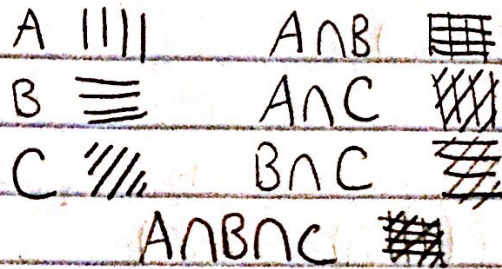 A A∩B
B A∩C
C B∩C
A∩B∩C